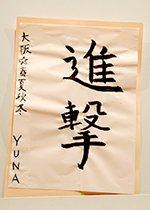 進撃
大阪☆春夏秋冬
YUNA